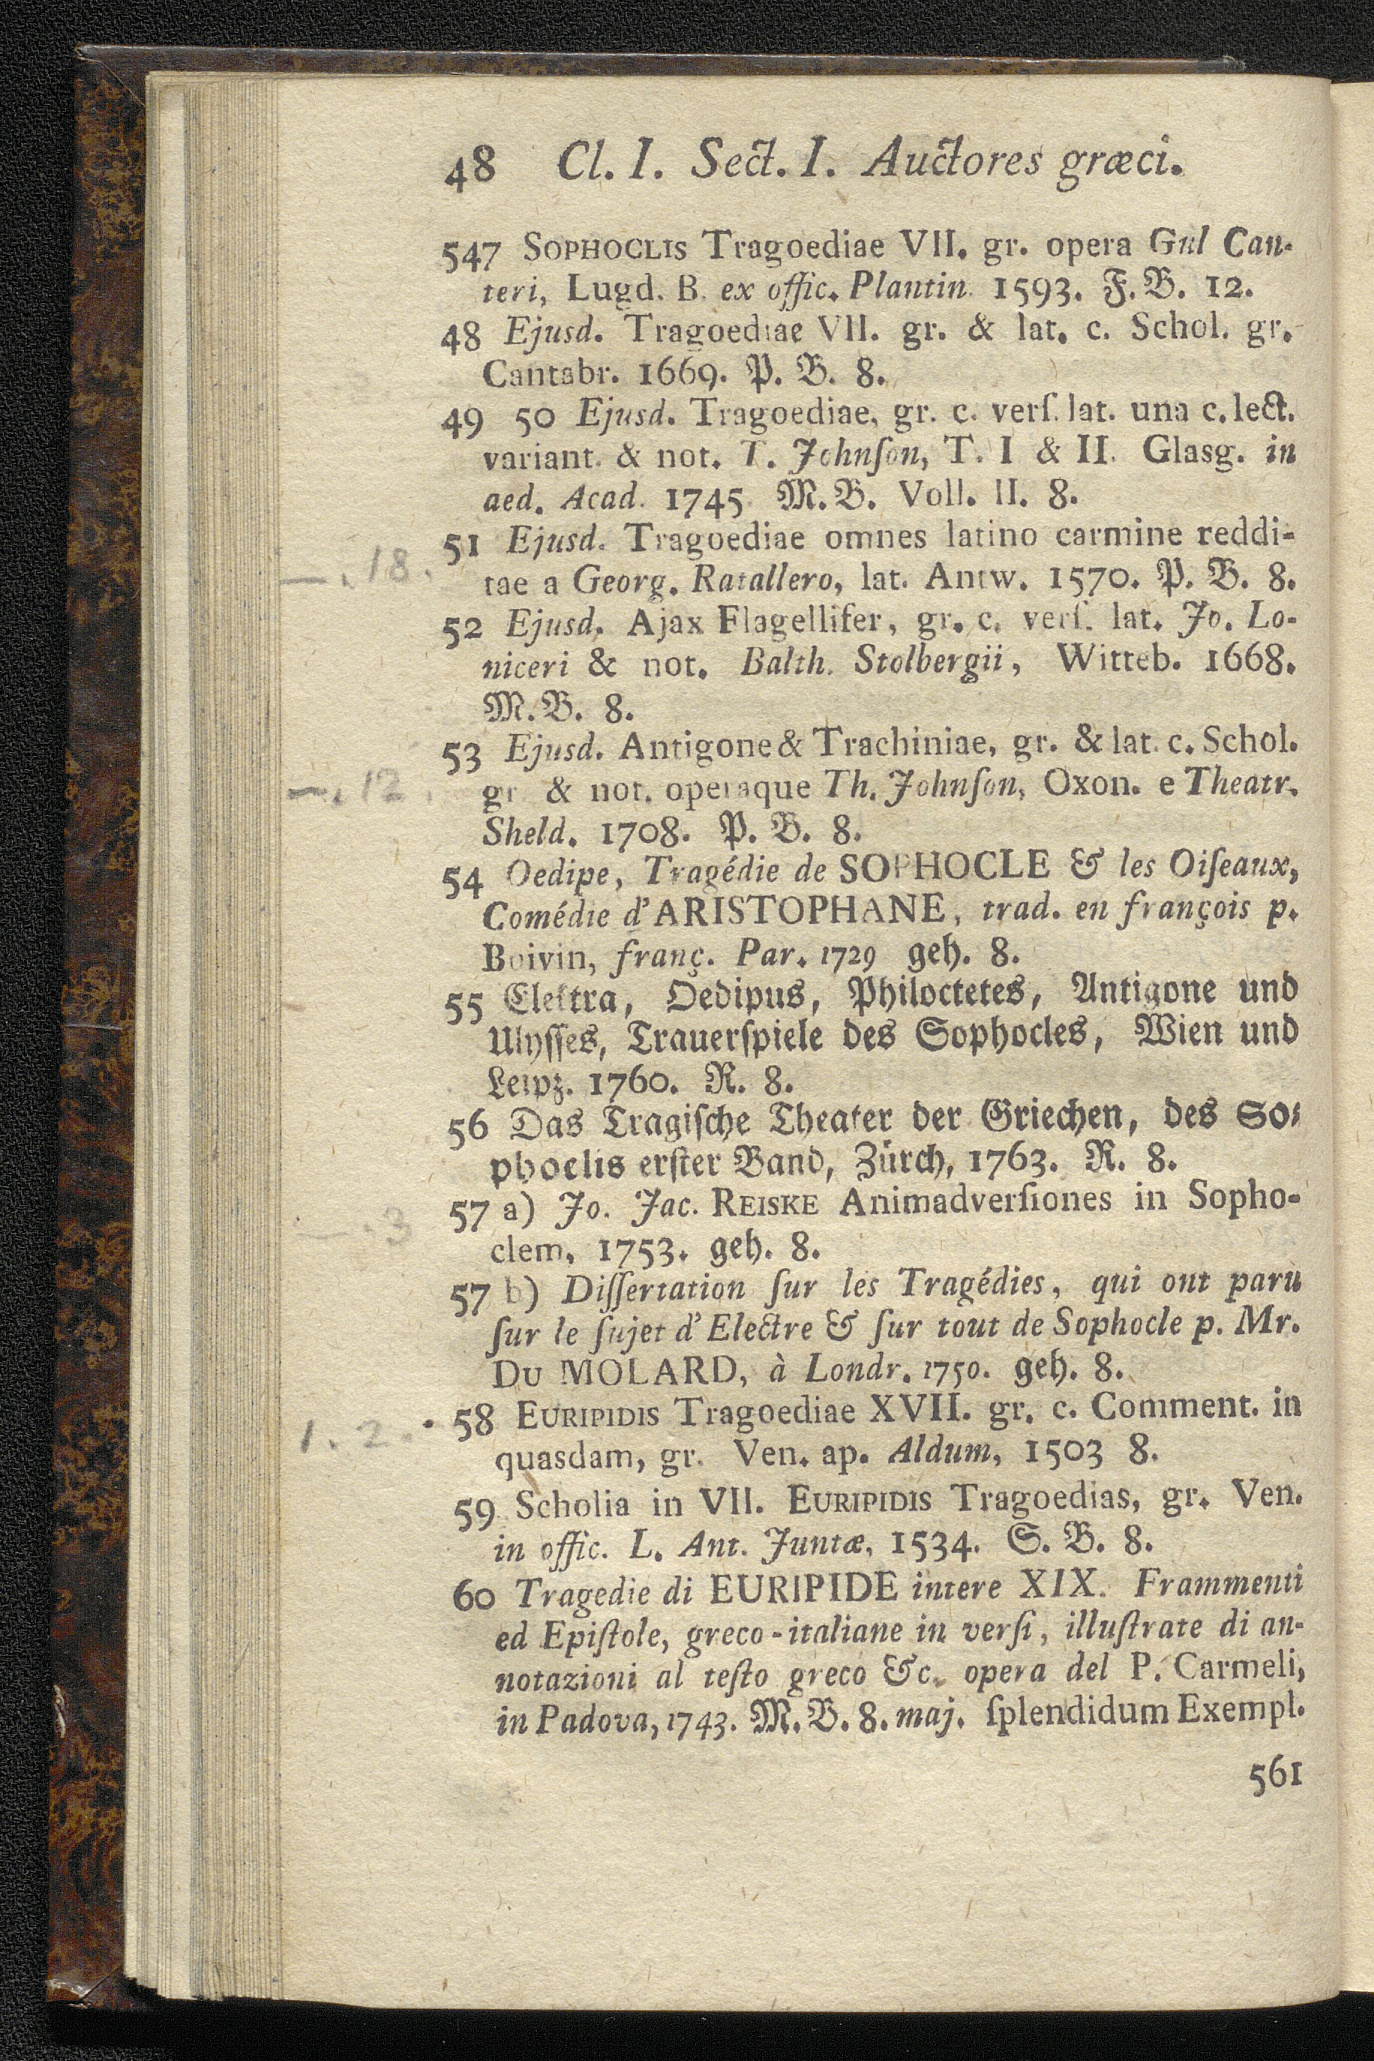 48 Cl. I. Sect. I. Auctores græci.
547 SOPHOCLIS Tragoediae VII. gr. opera Gul Can-
teri, Lugd. B. ex offic. Plantin. 1593. F. B. 12.
48 Ejusd. Tragoediae VII. gr. & lat. c. Schol. gr.
Cantabr. 1669. P. B. 8.
49 50 Ejusd. Tragoediae, gr. c. verſ. lat. una c. lect.
variant. & not. T. Johnſon, T. I & II. Glasg. in
aed. Acad. 1745. M. B. Voll. II. 8.
51 Ejusd. Tragoediae omnes latino carmine reddi-
—. 18.
tae a Georg. Ratallero, lat. Antw. 1570. P. B. 8.
52 Ejusd. Ajax Flagellifer, gr. c. verſ. lat. Jo. Lo-
niceri & not. Balth. Stolbergii, Witteb. 1668.
M. B. 8.
53 Ejusd. Antigone & Trachiniae, gr. & lat. c. Schol.
—. 12.
gr & not. operaque Th. Johnſon, Oxon. e Theatr.
Sheld. 1708. P. B. 8.
54 Oedipe, Tragédie de SOPHOCLE & les Oiſeaux,
Comédie d'ARISTOPHANE, trad. en françois p.
Boivin, franç. Par. 1729 geh. 8.
55 Elektra, Oedipus, Philoctetes, Antigone und
Ulyſſes, Trauerſpiele des Sophocles, Wien und
Leipz. 1760. R. 8.
56 Das Tragiſche Theater der Griechen, des So-
phoclis erſter Band, Zürch, 1763. R. 8.
57 a) Jo. Jac. REISKE Animadverſiones in Sopho-
—. 3
clem, 1753. geh. 8.
57 b) Diſſertation ſur les Tragédies, qui ont paru
ſur le ſujet d'Electre & ſur tout de Sophocle p. Mr.
DU MOLARD, à Londr. 1750. geh. 8.
58 EURIPIDIS Tragoediae XVII. gr. c. Comment. in
1. 2.
quasdam, gr. Ven. ap. Aldum, 1503 8.
59 Scholia in VII. EURIPIDIS Tragoedias, gr. Ven.
in offic. L. Ant. Juntæ, 1534. S. B. 8.
60 Tragedie di EURIPIDE intere XIX. Frammenti
ed Epiſtole, greco-italiane in verſi, illuſtrate di an-
notazioni al teſto greco &c. opera del P. Carmeli,
in Padova, 1743. M. B. 8. maj. ſplendidum Exempl.
561